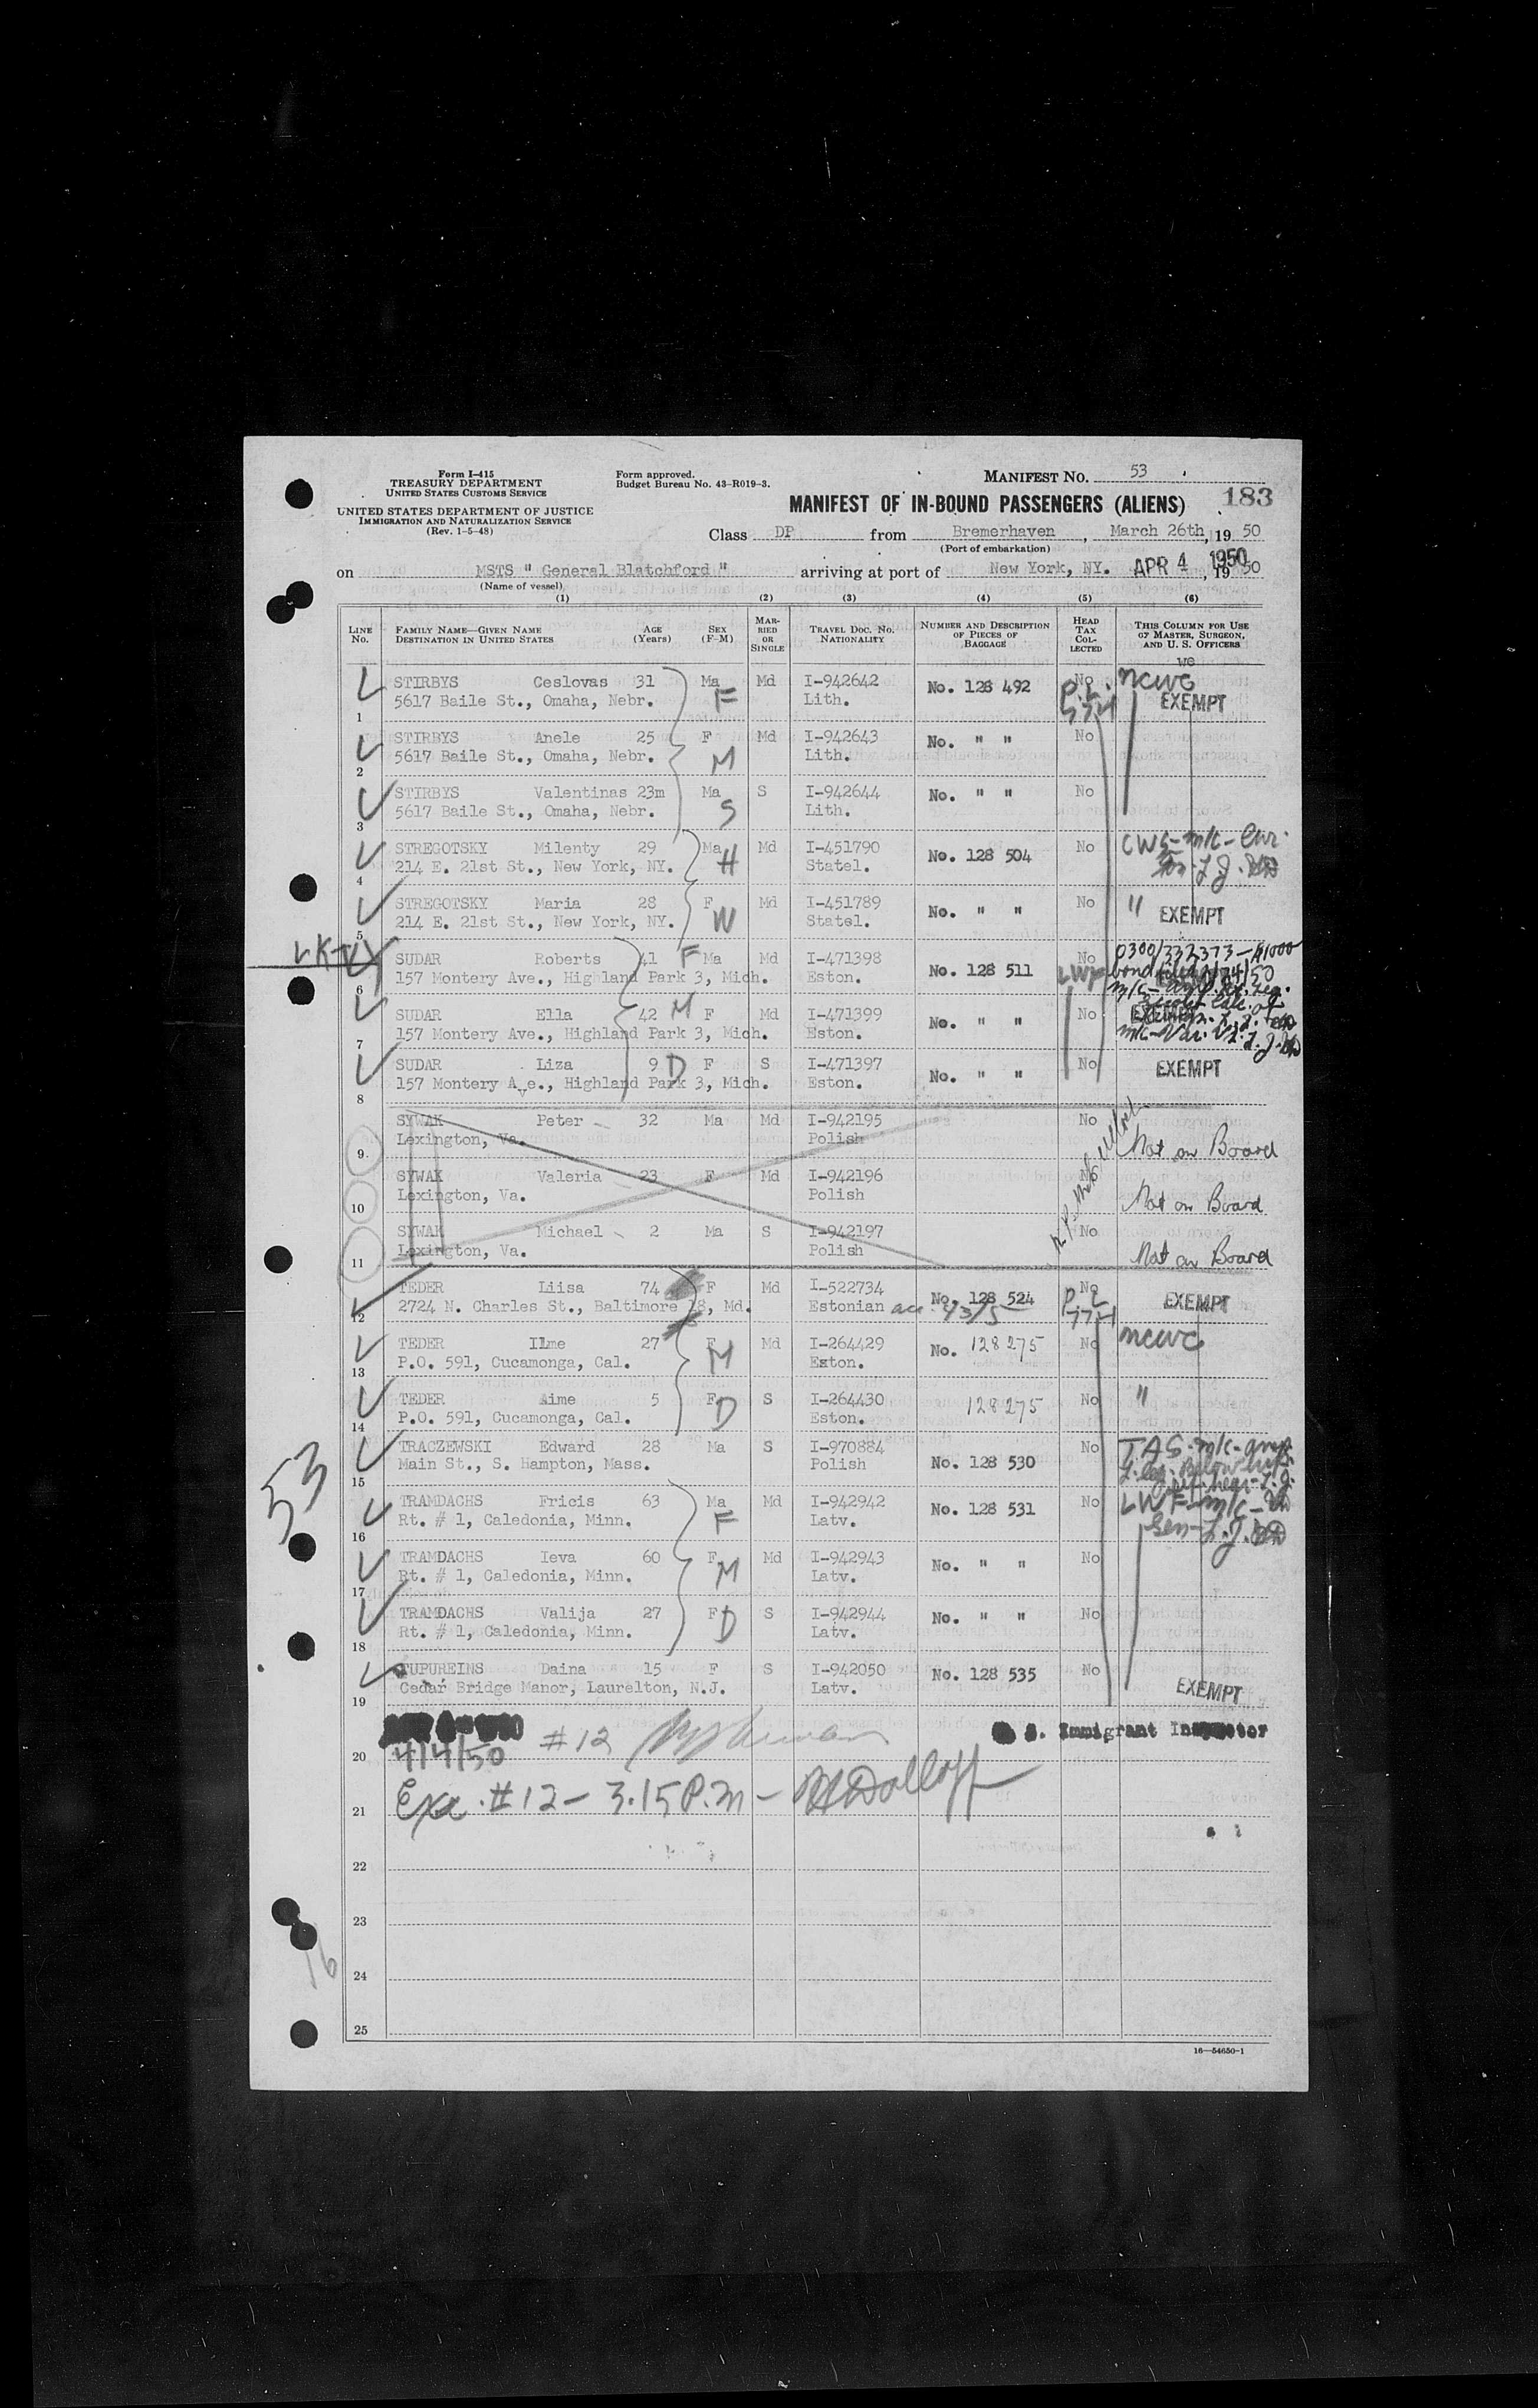 Form I-415
TREASURY DEPARTMENT
UNITED STATES CUSTOMS SERVICE
UNITED STATES DEPARTMENT OF JUSTICE
IMMIGRATION AND NATURALIZATION SERVICE
(Rev. 1-5-48)
Form approved.
Budget Bureau No. 43-R019-3.
MANIFEST No. 53
183
MANIFEST OF IN-BOUND PASSENGERS (ALIENS)
Class DP from Bremerhaven, March 26th, 1950
(Port of embarkation)
on MSTS " General Blatchford " arriving at port of New York, NY. APR 4 1950, 1950
(Name of vessel)
(1) (2) (3) (4) (5) (6)
LINE No. FAMILY NAME—GIVEN NAME DESTINATION IN UNITED STATES AGE (Years) SEX (F-M) MARRIED OR SINGLE TRAVEL DOC. No. NATIONALITY NUMBER AND DESCRIPTION OF PIECES OF BAGGAGE HEAD TAX COLLECTED THIS COLUMN FOR USE OF MASTER, SURGEON, AND U. S. OFFICERS
STIRBYS Ceslovas 31 Ma Md I-942642 No. 128 492 No NCWC
1 5617 Baile St., Omaha, Nebr. F Lith. EXEMPT
STIRBYS Anele 25 F Md I-942643 No. " " No
2 5617 Baile St., Omaha, Nebr. M Lith.
STIRBYS Valentinas 23m Ma S I-942644 No. " " No
3 5617 Baile St., Omaha, Nebr. S Lith.
STREGOTSKY Milenty 29 Ma Md I-451790 No. 128 504 No CWS-m/c-
4 214 E. 21st St., New York, NY. H Statel.
STREGOTSKY Maria 28 F Md I-451789 No. " " No "
5 214 E. 21st St., New York, NY. W Statel. EXEMPT
SUDAR Roberts 41 F Ma Md I-471398 No. 128 511 No 0300/332373-$1000
6 157 Montery Ave., Highland Park 3, Mich. Eston. LWF bond
SUDAR Ella 42 M F Md I-471399 No. " " No EXEMPT
7 157 Montery Ave., Highland Park 3, Mich. Eston.
SUDAR Liza 9 D F S I-471397 No. " " No EXEMPT
8 157 Montery Ave., Highland Park 3, Mich. Eston.
SYWAK Peter 32 Ma Md I-942195 No
9 Lexington, Va. Polish Not on Board
SYWAK Valeria 23 F Md I-942196 No
10 Lexington, Va. Polish Not on Board
SYWAK Michael 2 Ma S I-942197 No
11 Lexington, Va. Polish Not on Board
TEDER Liisa 74 F Md I-522734 No. 128 524 No EXEMPT
12 2724 N. Charles St., Baltimore 18, Md. Estonian
TEDER Ilme 27 F Md I-264429 No. 128275 No NCWC
13 P.O. 591, Cucamonga, Cal. M Exton.
TEDER Aime 5 F S I-264430 128275 No "
14 P.O. 591, Cucamonga, Cal. D Eston.
TRACZEWSKI Edward 28 Ma S I-970884 No. 128 530 No
15 Main St., S. Hampton, Mass. Polish
TRAMDACHS Fricis 63 Ma Md I-942942 No. 128 531 No LWF-m/c-
16 Rt. # 1, Caledonia, Minn. F Latv.
TRAMDACHS Ieva 60 F Md I-942943 No. " " No
17 Rt. # 1, Caledonia, Minn. M Latv.
TRAMDACHS Valija 27 F S I-942944 No. " " No
18 Rt. # 1, Caledonia, Minn. D Latv.
TUPUREINS Daina 15 F S I-942050 No. 128 535 No
19 Cedar Bridge Manor, Laurelton, N.J. Latv. EXEMPT
53
20 4/4/50 #12 S. Immigrant Inspector
21 Exa. #12 - 3.15 P.M -
22
23
16
24
25
16—54650-1